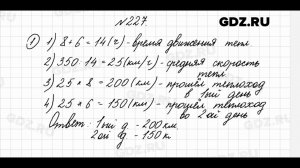 GDZ.RU
№227.
① 1) 8+6=14(ч)-время движения тепл
2) 350:14=25(км/ч)-средняя скорость
тепл
3) 25×8=200(км)-прошёл теплоход
в 1ый день
4) 25×6=150(км)-прошёл теплоход
во 2ой день
Ответ: 1ый д - 200км
2ой д - 150км